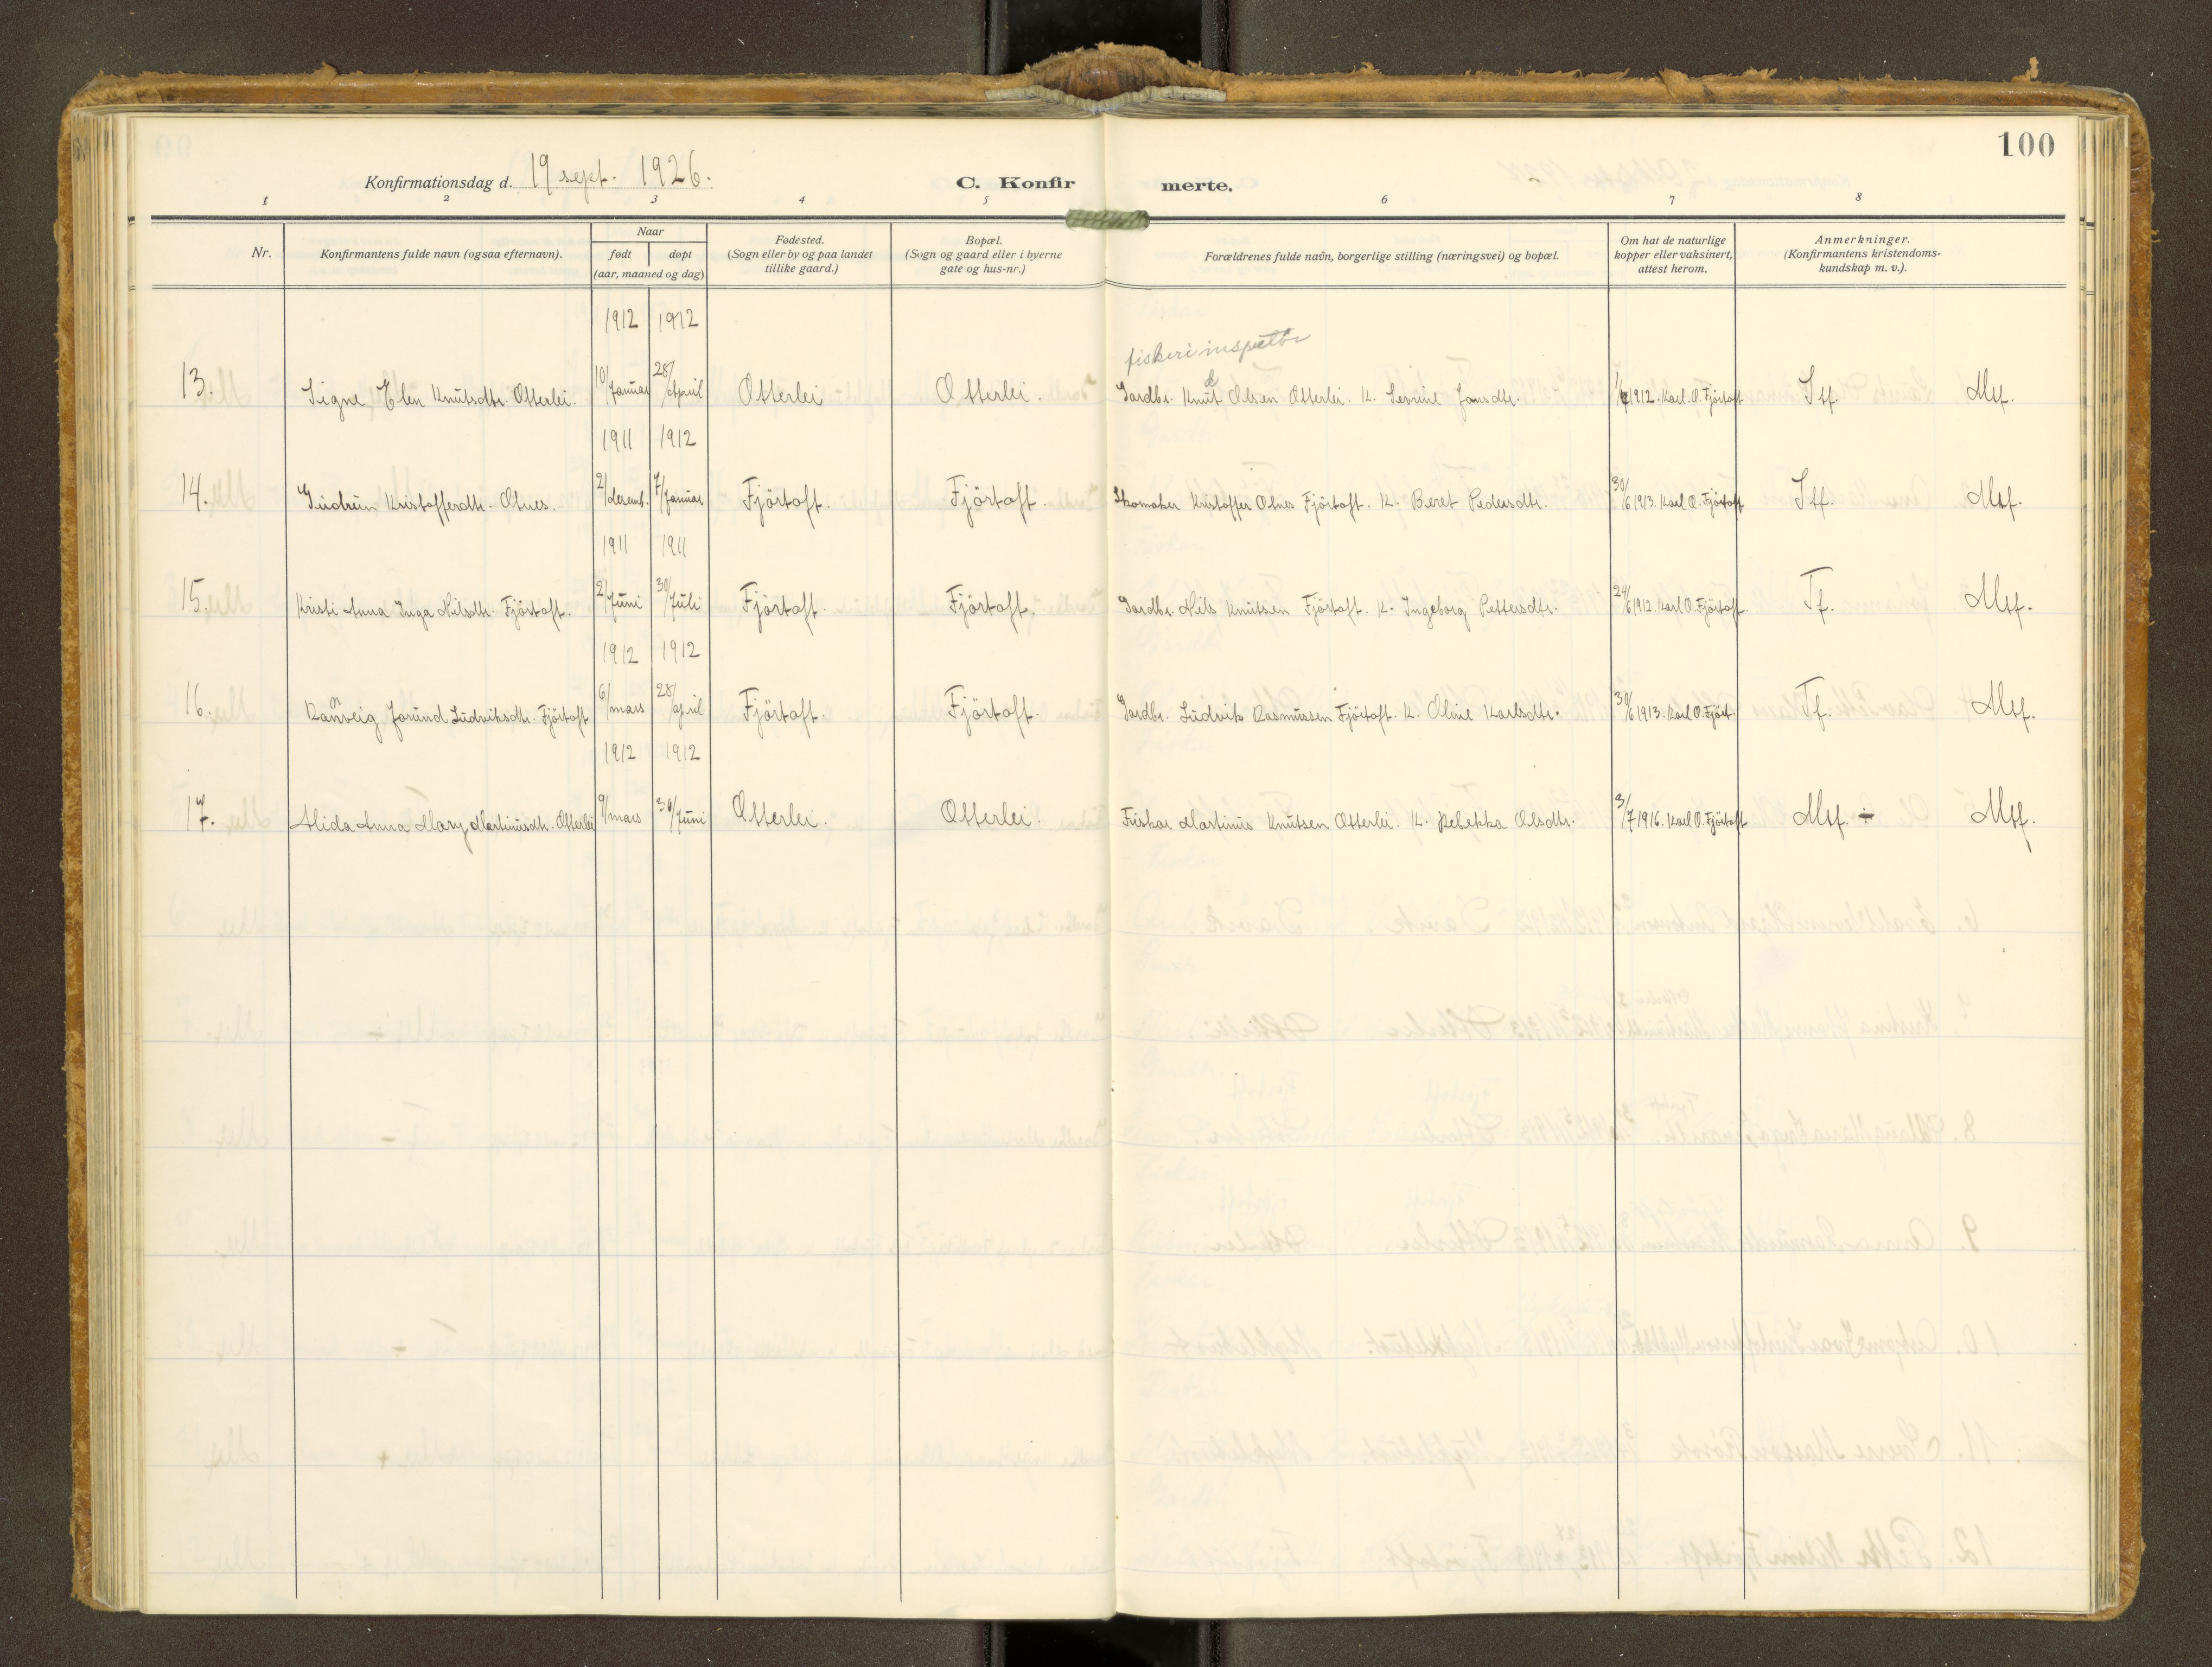 100
Konfirmationsdag d. 19 sept. 1926.
C. Konfirmerte.
1 2 3 4 5 6 7 8
Nr.
Konfirmantens fulde navn (ogsaa efternavn).
Naar
født døpt
(aar, maaned og dag)
Fødested.
(Sogn eller by og paa landet
tillike gaard.)
Bopæl.
(Sogn og gaard eller i byerne
gate og hus-nr.)
Forældrenes fulde navn, borgerlige stilling (næringsvei) og bopæl.
Om hat de naturlige
kopper eller vaksinert,
attest herom.
Anmerkninger.
(Konfirmantens kristendoms-
kundskap m. v.).
1912 1912
fiskeriinspektør
13. Signe Elen Knutsdtr. Otterlei. 10/Januar 28/April Otterlei Otterlei. Gardbr. Knut Olsen Otterlei. K. Sevrine Jonsdtr. 1912. Karl. O. Fjörtoft Stf. Mtf.
1911 1912
14. Gudrun Kristofferdtr. Olnes. 2/desemb. 7/Januar Fjörtoft. Fjörtoft. Skomaker Kristoffer Olnes Fjörtoft. K. Beret Pedersdtr. 30/6 1913. Karl O. Fjörtoft Stf. Mtf.
1911 1911
15. Kristi Anna Inga Nilsdtr. Fjörtoft. 2/Juni 30/Juli Fjörtoft. Fjörtoft. Gardbr. Nils Knutsen Fjörtoft. K. Ingeborg Pettersdtr. 24/6 1912. Karl O. Fjörtoft. Tf. Mtf.
1912 1912
16. Ranveig Jorund Ludviksdtr. Fjörtoft 6/mars 28/april Fjörtoft. Fjörtoft. Gardbr. Ludvik Rasmussen Fjörtoft. K. Oline Karlsdtr. 30/6 1913. Karl O. Fjört. Tf. Mtf.
1912 1912
17. Alida Anna Mary Martinusdtr. Otterlei 9/mars 30/Juni Otterlei. Otterlei. Fiskar Martinus Knutsen Otterlei. K. Rebekka Olsdtr. 3/7 1916. Karl O. Fjörtoft Mtf. ÷ Mtf.